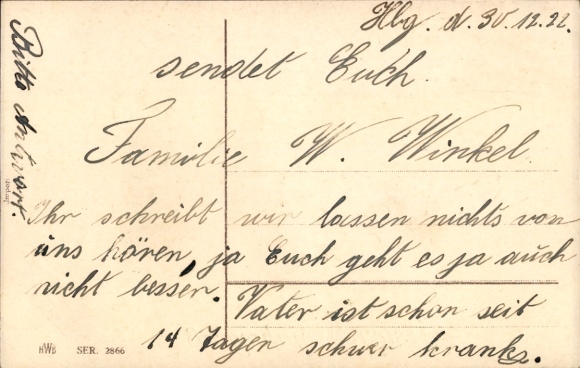 Hbg. d. 30.12.22.
sendet Euch.
Familie W. Winkel.
Ihr schreibt wir lassen nichts von
uns hören, ja Euch geht es ja auch
nicht besser.
Vater ist schon seit
14 Tagen schwer krank.
Bitte Antwort.
Import
HWB SER. 2866